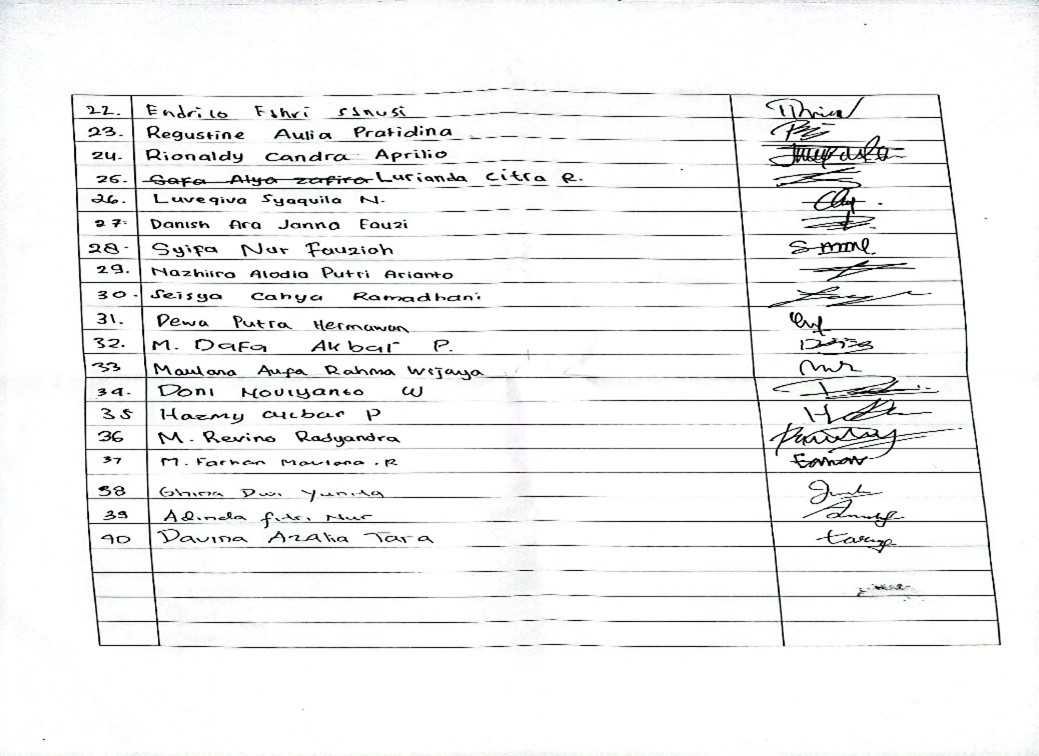 22. Endrico Fahri Sanusi
23. Regustine Aulia Pratidina
24. Rionaldy Candra Aprilio
25. Safa Alya Zafira Lurianda Citra R.
26. Luveqiva Syaquila N.
27. Danish Ara Janna Fauzi
28. Syifa Nur Fauziah
29. Nazhiira Alodia Putri Arianto
30. Seisya Cahya Ramadhani
31. Dewa Putra Hermawan
32. M. Dafa Akbar P.
33 Maulana Aufa Rahma Wijaya
34. Doni Noviyanto W
35 Hazmy Akbar P
36 M. Revino Radyandra
37 M. Farhan Maulana . R
38 Ghina Dwi Yunita
39 Adinda Fitri Nur
40 Davina Azalia Tara